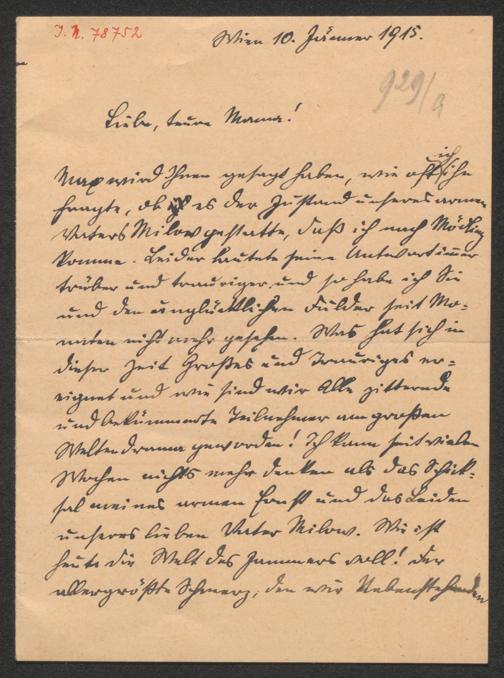 J.N. 78752
Wien 10. Jänner 1915.
929/a
Liebe, teure Mama!
Max wird Ihnen gesagt haben, wie oft ich ihn
fragte, ob es der Zustand unseres armen
Vaters Milow gestatte, daß ich nach Mödling
komme. Leider lautete seine Antwort immer
trüber und trauriger und so habe ich Sie
und den unglücklichen Dulder seit Mo-
naten nicht mehr gesehen. Was hat sich in
dieser Zeit Großes und Trauriges er-
eignet und wie sind wir Alle zitternde
und bekümmerte Teilnehmer am großen
Weltendrama geworden! Ich kann seit vielen
Wochen nichts mehr denken als das Schick-
sal meines armen Ernst und das Leiden
unseres lieben Vater Milow. Wie ist
heute die Welt des Jammers voll! Der
allergrößte Schmerz, den wir Nebenstehenden